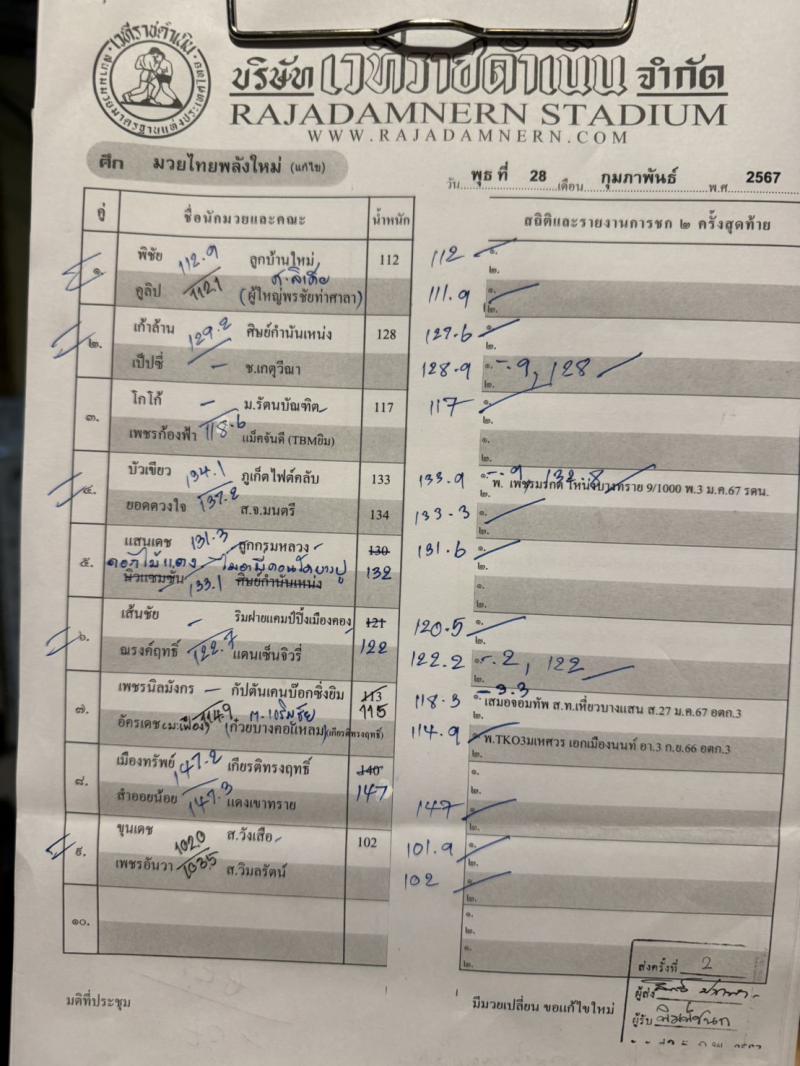 เวทีราชดำเนิน
บริษัท เวทีราชดำเนิน จำกัด
RAJADAMNERN STADIUM
WWW.RAJADAMNERN.COM
ศึก มวยไทยพลังใหม่ (แก้ไข)
วัน พุธ ที่ 28 เดือน กุมภาพันธ์ พ.ศ 2567
คู่ ชื่อนักมวยและคณะ น้ำหนัก สถิติและรายงานการชก ๒ ครั้งสุดท้าย
๑. พิชัย 112.9 ลูกบ้านใหม่ 112 112 ๑.
๒.
อูลิป 112.1 (ผู้ใหญ่พรชัยท่าศาลา) 111.9
๒. เก้าล้าน 129.2 ศิษย์กำนันเหน่ง 128 127.6 ๑.
๒.
เป๊ปซี่ - ช.เกตุวีณา 128.9 ๑. -.9, 128
๒.
๓. โกโก้ - ม.รัตนบัณฑิต 117 117 ๑.
๒.
เพชรก้องฟ้า 118.6 แม็คจันดี (TBMยิม) ๑.
๒.
๔. บัวเขียว 134.1 ภูเก็ตไฟต์คลับ 133 133.9 -.9, 132.8
๒. พ. เพชรมรกต 9/1000 พ.3 ม.ค.67 รดน.
ยอดดวงใจ 137.2 ส.จ.มนตรี 134 133.3 ๑.
๒.
๕. แสนเดช 131.3 ลูกกรมหลวง 130 131.6 ๑.
๒.
ดอกไม้แดง 132 ๑.
นิวแชมชัน 133.1 ศิษย์กำนันเหน่ง ๒.
๖. เส้นชัย - ริมฝายแคมป์ปิ้งเมืองคอง 121 120.5 ๑.
๒.
ณรงค์ฤทธิ์ 122.7 แดนเซ็นจิวรี่ 122 122.2 ๑. -.2, 122
๒.
๗. เพชรนิลมังกร - กัปตันเคนบ๊อกซิ่งยิม 113 118.3 -.3.3
115 ๑. เสมอจอมทัพ ส.ท.เหี่ยวบางแสน ส.27 ม.ค.67 อตก.3
๒.
อัครเดช (ม.เฟือง) 114.9 (ก๋วยบางคอแหลม) (เกียรติทรงฤทธิ์) 114.9 พ.TKO3มเหศวร เอกเมืองนนท์ อา.3 ก.ย.66 อตก.3
๘. เมืองทรัพย์ 147.2 เกียรติทรงฤทธิ์ 140 ๑.
147 ๒.
สำออยน้อย 147.3 แดงเขาทราย 147 ๑.
๒.
๙. ขุนเดช 102.0 ส.วังเสือ 102 101.9 ๑.
๒.
เพชรอันวา 103.5 ส.วิมลรัตน์ 102 ๑.
๒.
๑๐. ๑.
๒.
๑.
๒.
มติที่ประชุม มีมวยเปลี่ยน ขอแก้ไขใหม่
ส่งครั้งที่ 2
ผู้ส่ง
ผู้รับ พิมพ์ชนก